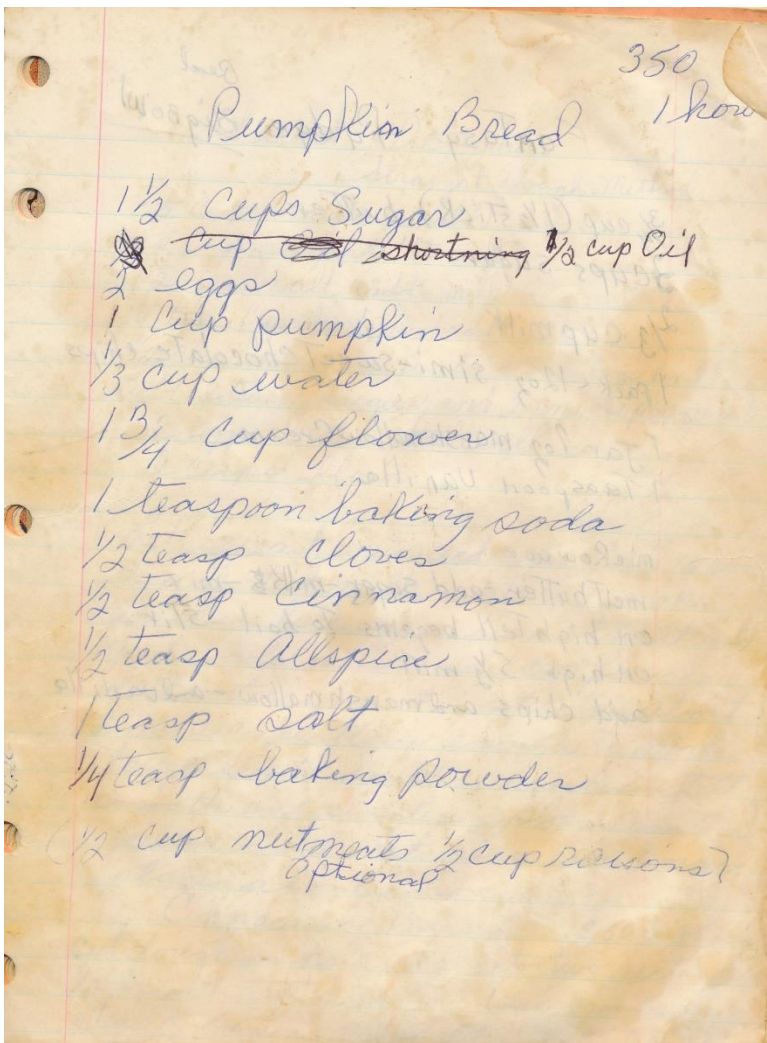 350
Pumpkin Bread 1 hour
1 1/2 Cups Sugar
Cup Oil shortning 1/2 cup Oil
2 eggs
1 Cup pumpkin
1/3 cup water
1 3/4 Cup flower
1 teaspoon baking soda
1/2 teasp Cloves
1/2 teasp Cinnamon
1/2 teasp Allspice
1 teasp salt
1/4 teasp baking powder
(1/2 cup nutmeats 1/2 cup raisions)
Optional